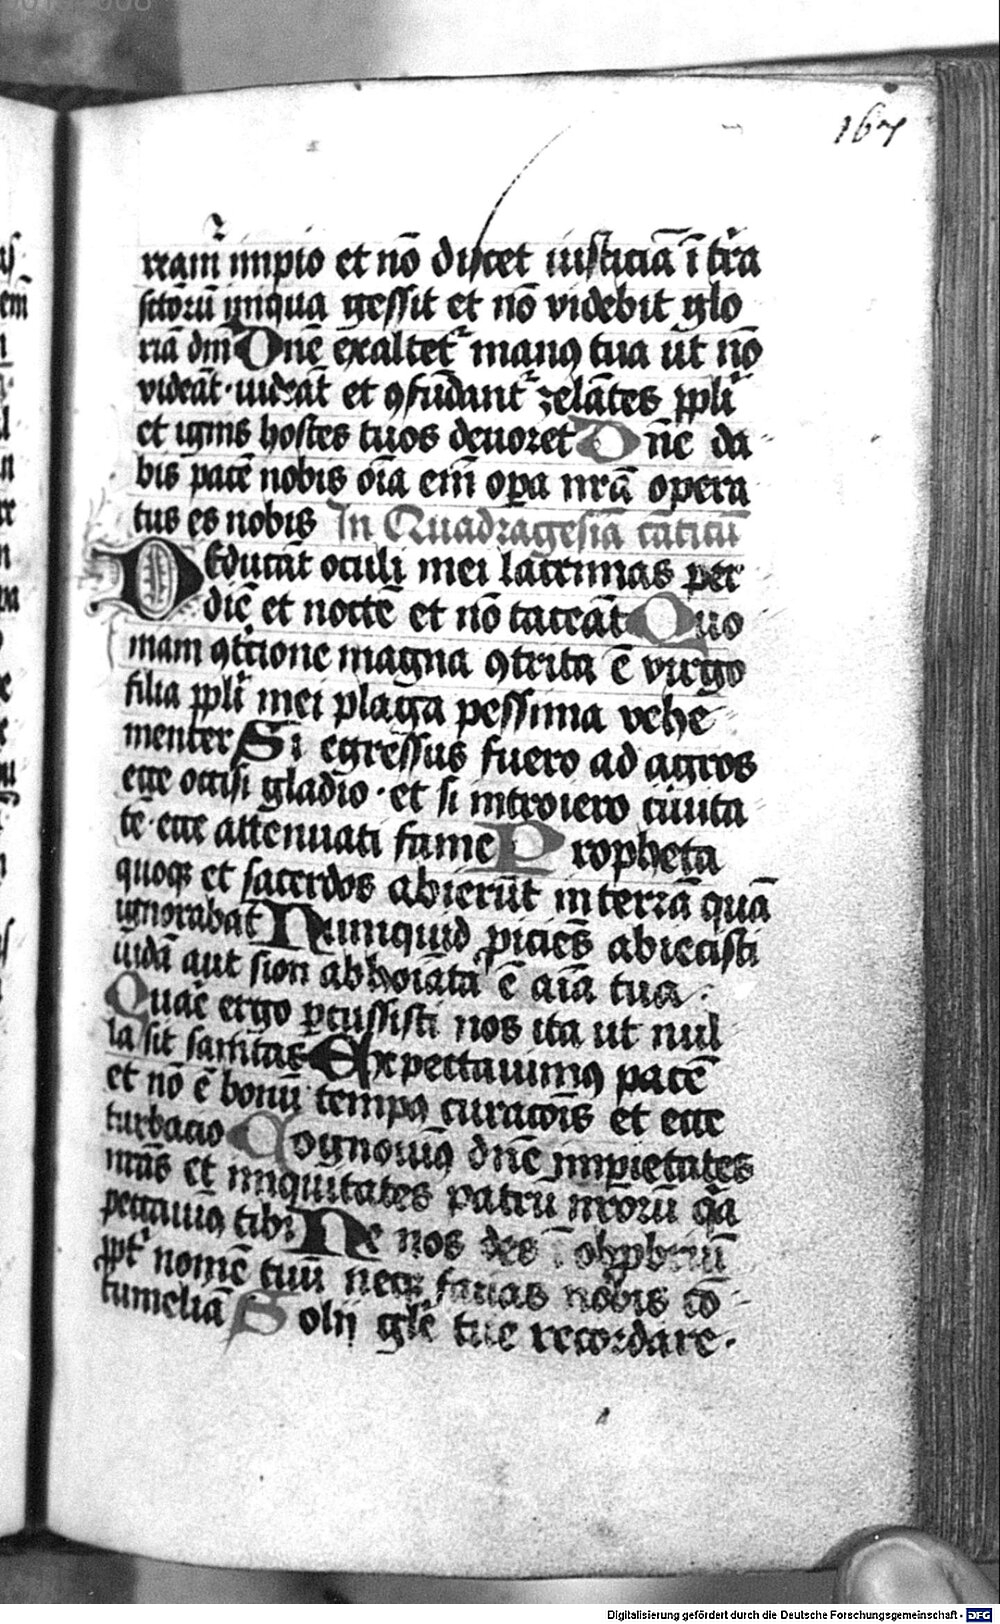 167
ream impio et nō discet iusticiā ī tr̄a
sctōrū iniqua gessit et nō videbit glo
riā dm̄ Dn̄e exaltet᷑ manꝯ tua ut nō
videāt · uideāt et ꝯfūdant᷑ zelātes ppl̄i
et ignis hostes tuos deuoret Dn̄e da
bis pacē nobis oīa em̄ oꝑa nr̄a opera
tus es nobis In Quadragesīa cāticū
Deducāt oculi mei lacrimas per
diē et noctē et nō taceāt Quo
niam ꝯtricione magna ꝯtrita ē virgo
filia ppl̄i mei plaga pessima vehe
menter Si egressus fuero ad agros
ecce occisi gladio · et si introiero ciuita
tē · ecce attenuati fame Propheta
quoqꝫ et sacerdos abierūt in terrā quā
ignorabāt Numquid ꝓiciēs abiecisti
iudā aut sion abhoīata ē aīa tua ·
Quaē ergo ꝑcussisti nos ita ut nul
la sit sanitas Expectauimꝯ pacē
et nō ē bonū tempꝯ curacōis et ecce
turbacio Cognouimꝯ dn̄e impietates
nr̄as et iniquitates patrū nr̄orū q̄a
peccauimꝯ tibi Ne nos des ī obp̱briū
ppt᷑ nomē tuū necꝫ facias nobis cō
tumeliā Solij gl̄e tue recordare ·
Digitalisierung gefördert durch die Deutsche Forschungsgemeinschaft - DFG